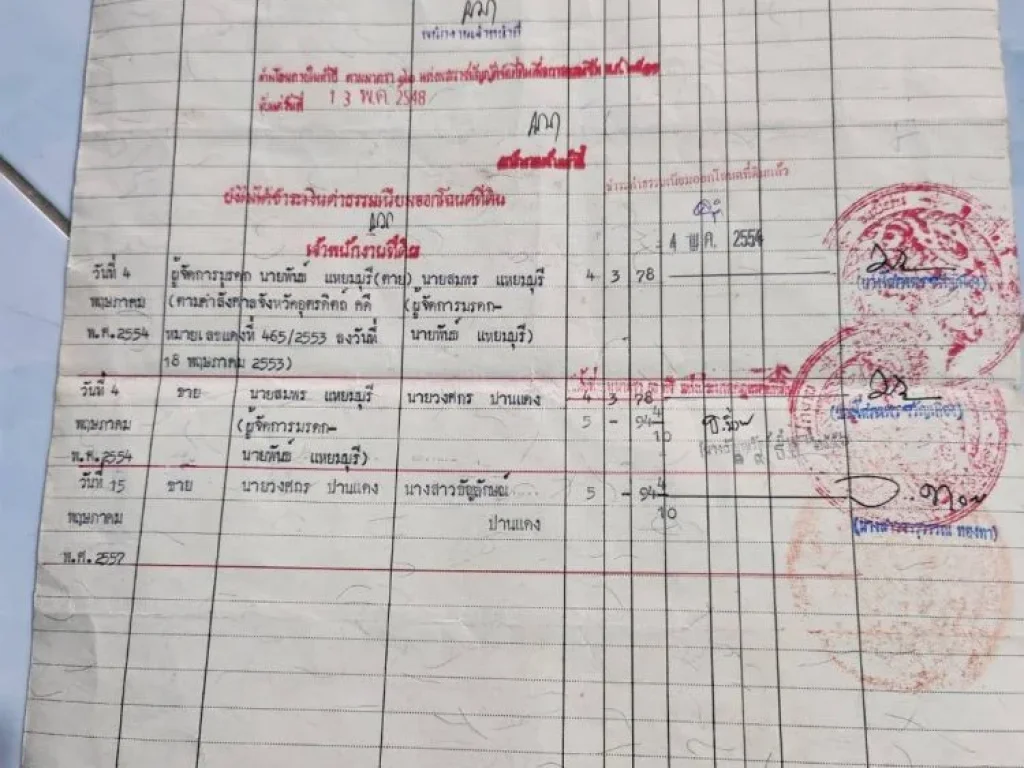 พนักงานเจ้าหน้าที่
ห้ามโอนภายในสิบปี ตามมาตรา ๑๒ แห่งพระราชบัญญัติจัดที่ดินเพื่อการครองชีพ พ.ศ. ๒๕๑๑
ตั้งแต่วันที่ 13 พ.ค. 2548
พนักงานเจ้าหน้าที่
ชำระค่าธรรมเนียมออกโฉนดที่ดินแล้ว
ยังไม่ได้ชำระเงินค่าธรรมเนียมออกโฉนดที่ดิน
4 พ.ค. 2554
เจ้าพนักงานที่ดิน
วันที่ 4 ผู้จัดการมรดก นายพันธ์ แหยมบุรี(ตาย) นายสมพร แหยมบุรี 4 3 78
พฤษภาคม (ตามคำสั่งศาลจังหวัดอุตรดิตถ์ คดี (ผู้จัดการมรดก-
พ.ศ. 2554 หมายเลขแดงที่ 465/2553 ลงวันที่ นายพันธ์ แหยมบุรี)
18 พฤษภาคม 2553)
วันที่ 4 ขาย นายสมพร แหยมบุรี นายวงศกร ปานแดง 4 3 78
พฤษภาคม (ผู้จัดการมรดก- 5 - 94 4/10
พ.ศ. 2554 นายพันธ์ แหยมบุรี)
วันที่ 15 ขาย นายวงศกร ปานแดง นางสาวธัญลักษณ์ 5 - 94 4/10
พฤษภาคม ปานแดง
(นางสาวจารุวรรณ ทองทา)
พ.ศ. 2557